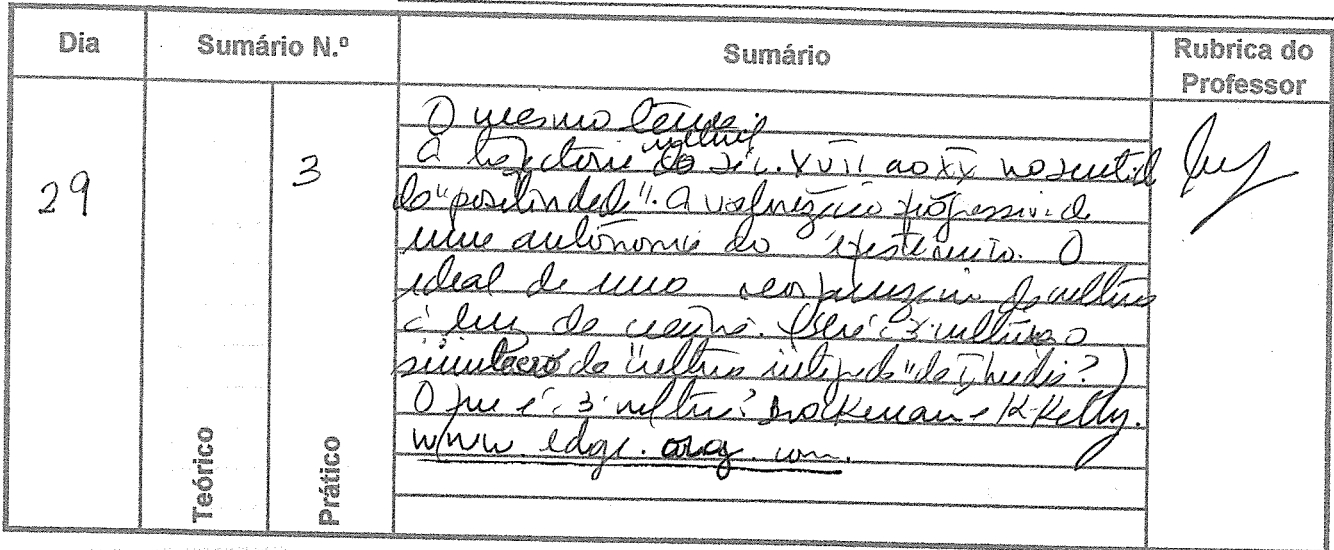 Dia
Sumário N.º
Sumário
Rubrica do
Professor
29
3
Teórico
Prático
O mesmo tema.
cultural
A trajectória do séc. XVII ao XX no sentido
da "positividade". A valorização progressiva de
uma autonomia do
O
ideal de uma da cultura
à luz da (Será a 3ª cultura o
simulacro da "cultura integrada" da I. ?)
O que é a 3ª cultura? Brockman e K. Kelly.
www.edge.org.com.